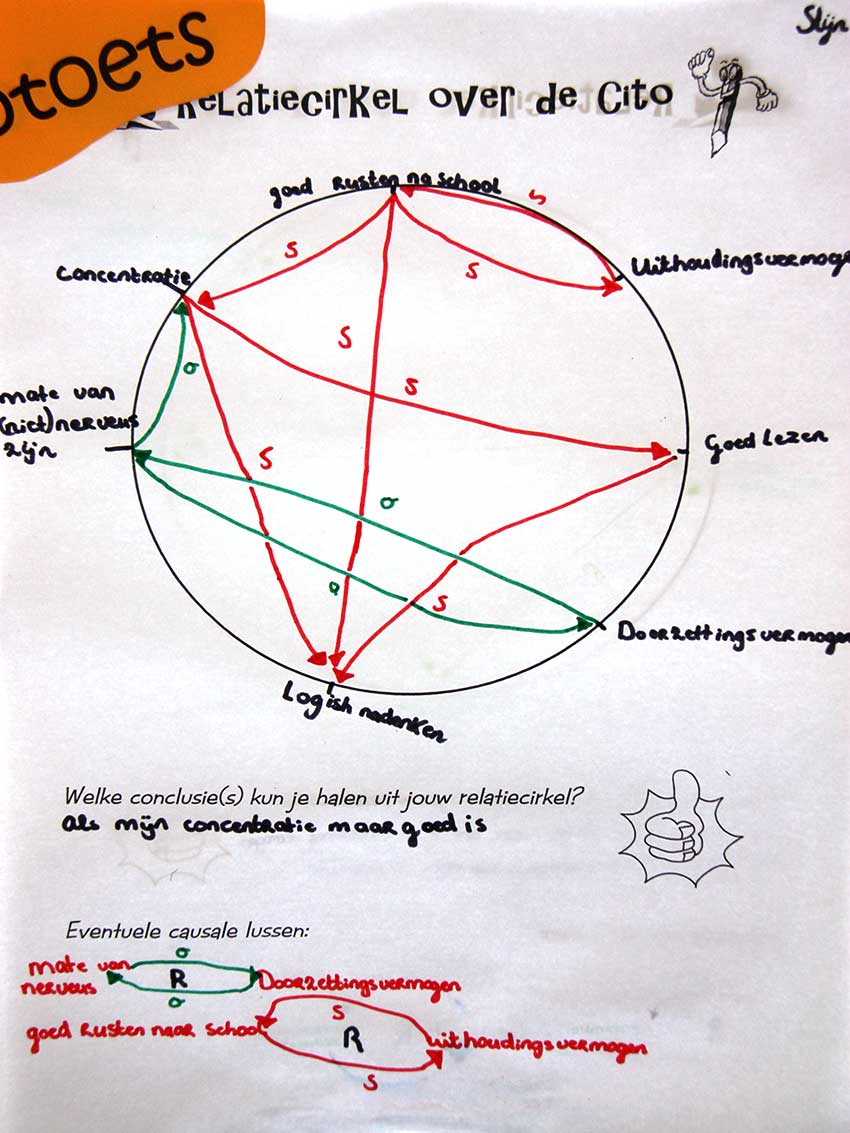 Stijn
otoets
Relatiecirkel over de Cito
goed Rusten na school
s
Uithoudingsvermoge
s
s
Concentratie
s
σ
s
mate van
(niet)nerveus
zijn
Goed Lezen
s
σ
σ
s
Doorzettingsvermogen
Logish nadenken
Welke conclusie(s) kun je halen uit jouw relatiecirkel?
als mijn concentratie maar goed is
Eventuele causale lussen:
σ
mate van
nerveus
R
Doorzettingsvermogen
σ
s
goed Rusten naar school
R
uithoudingsvermogen
s